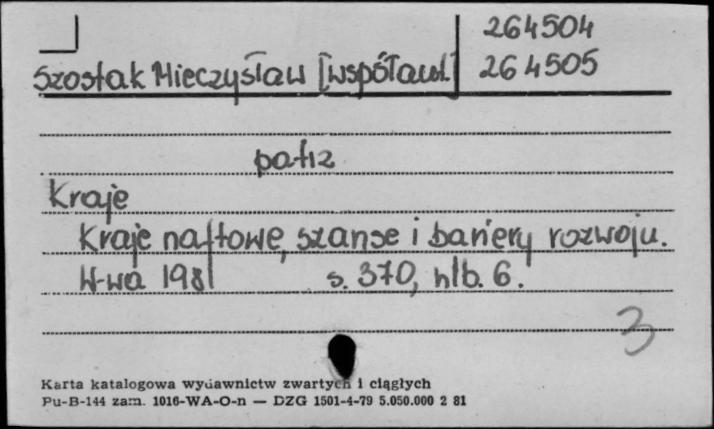 264504
Szostak Mieczysław [współaut.] 264505
patrz
Kraje
Kraje naftowe, szanse i bariery rozwoju.
W-wa 1981 s. 370, nlb. 6.
3
Karta katalogowa wydawnictw zwartych i ciągłych
Pu-B-144 zam. 1016-WA-O-n — DZG 1501-4-79 5.050.000 2 81